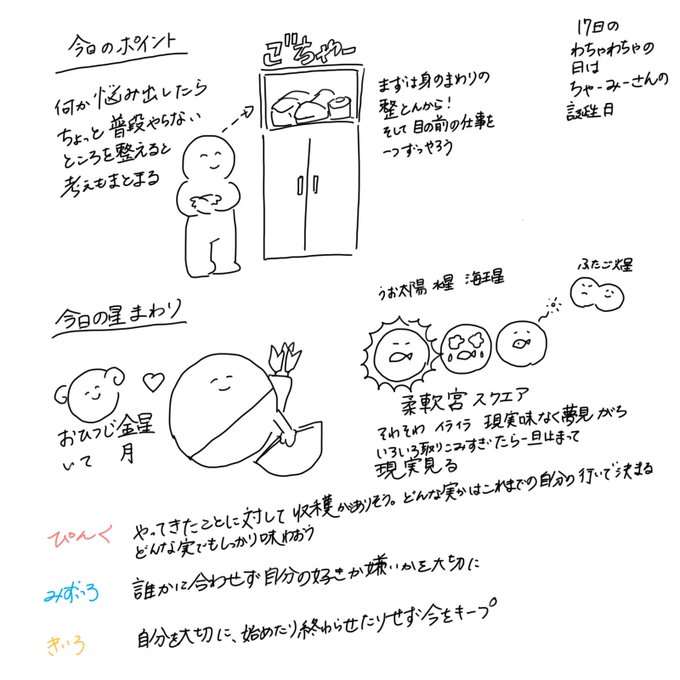 今日のポイント
何か悩み出したら
ちょっと普段やらない
ところを整えると
考えもまとまる
ごちゃー
まずは身のまわりの
整とんから!
そして目の前の仕事を
一つずつやろう
17日の
わちゃわちゃの
日は
ちゃーみーさんの
誕生日
今日の星まわり
おひつじ金星
いて 月
うお太陽 水星 海王星
ふたご火星
柔軟宮 スクエア
そわそわ イライラ 現実味なく夢見がち
いろいろ取りこみすぎたら一旦止まって
現実見る
ぴんく
やってきたことに対して収穫がありそう。どんな実かはこれまでの自分の行いで決まる
どんな実でもしっかり味わおう
みずいろ
誰かに合わせず自分の好きか嫌いかを大切に
きいろ
自分を大切に、始めたり終わらせたりせず今をキープ